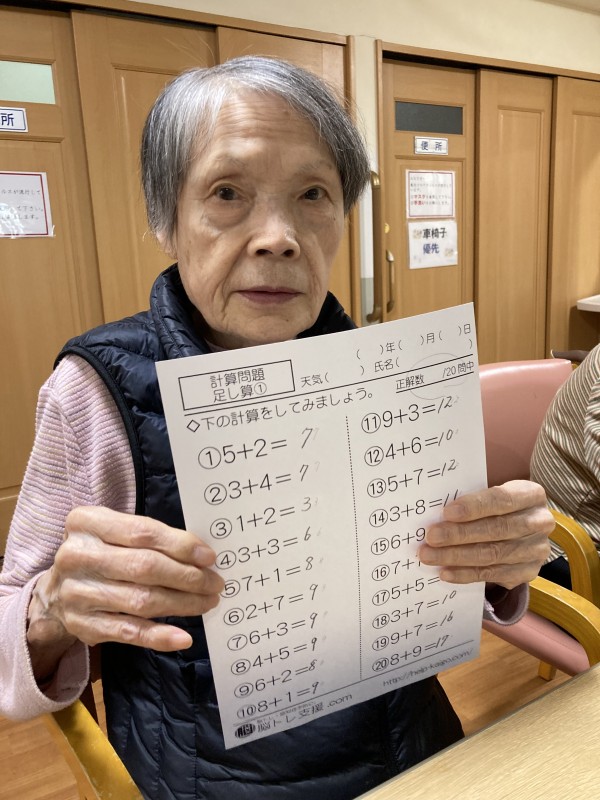 所
便所
車椅子
優先
計算問題
足し算①
(　)年(　)月(　)日
天気(　)　氏名(　)
正解数　/20問中
◇下の計算をしてみましょう。
①5+2=7
②3+4=7
③1+2=3
④3+3=6
⑤7+1=8
⑥2+7=9
⑦6+3=9
⑧4+5=9
⑨6+2=8
⑩8+1=9
⑪9+3=12
⑫4+6=10
⑬5+7=12
⑭3+8=11
⑮6+9
⑯7+
⑰5+5
⑱3+7=10
⑲9+7=16
⑳8+9=17
脳トレ支援.com